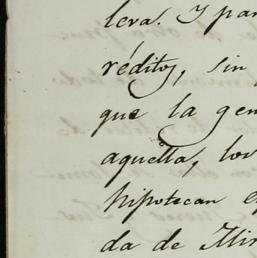 leva. Y par
réditos, sin
que la gen
aquella, los
hipotecan e
da de Mir